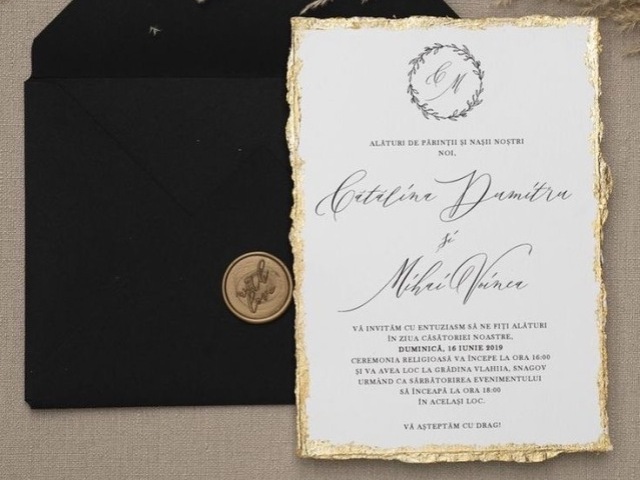 C M
ALĂTURI DE PĂRINȚII ȘI NAȘII NOȘTRI
NOI,
Cătălina Dumitru
și
Mihai Voinea
VĂ INVITĂM CU ENTUZIASM SĂ NE FIȚI ALĂTURI
ÎN ZIUA CĂSĂTORIEI NOASTRE,
DUMINICĂ, 16 IUNIE 2019
CEREMONIA RELIGIOASĂ VA ÎNCEPE LA ORA 16:00
ȘI VA AVEA LOC LA GRĂDINA VLAHIIA, SNAGOV
URMÂND CA SĂRBĂTORIREA EVENIMENTULUI
SĂ ÎNCEAPĂ LA ORA 18:00
ÎN ACELAȘI LOC.
VĂ AȘTEPTĂM CU DRAG!
with
love